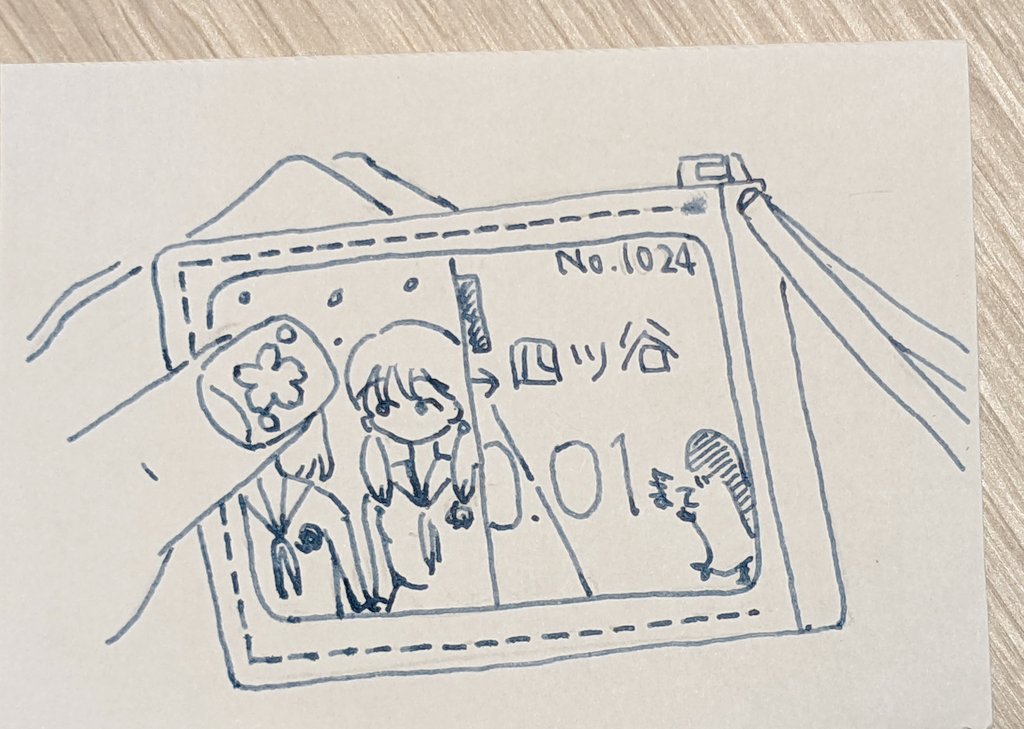 No.1024
→ 四ッ谷
0.01 まで